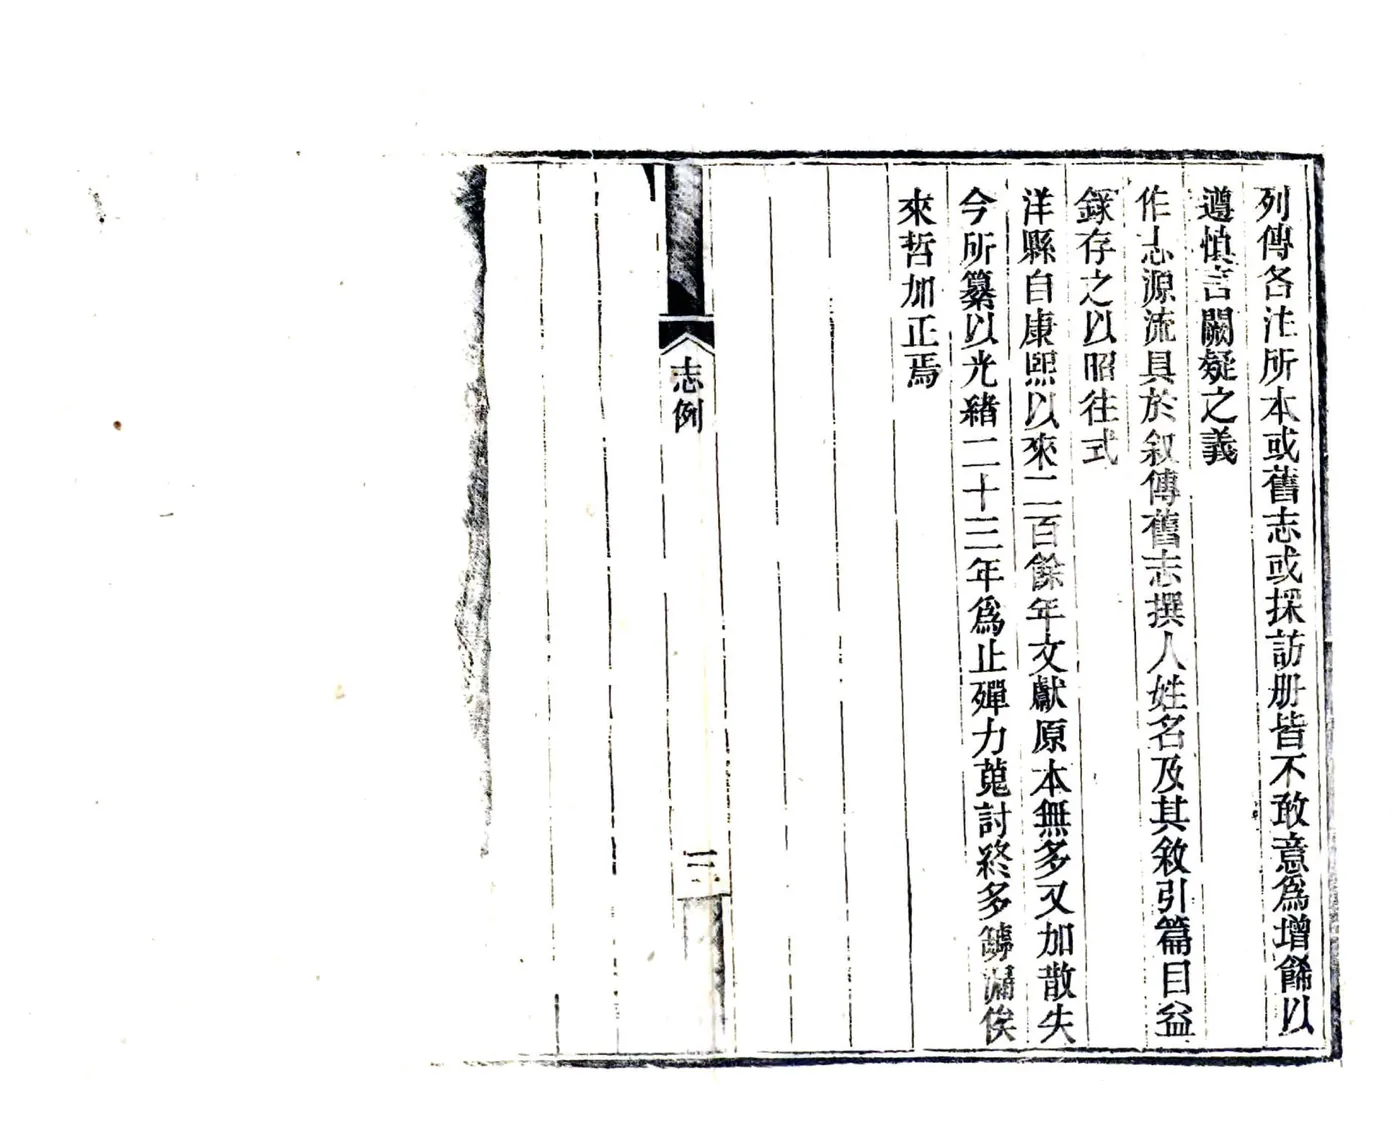 列傳各注所本或舊志或採訪册皆不敢意爲增餙以
遵慎言闕疑之義
作志源流具於叙傳舊志撰人姓名及其敘引篇目並
錄存之以昭往式
洋縣自康熙以來二百餘年文獻原本無多又加散失
今所纂以光緒二十三年爲止殫力蒐討終多罅漏俟
來哲加正焉
志例
三